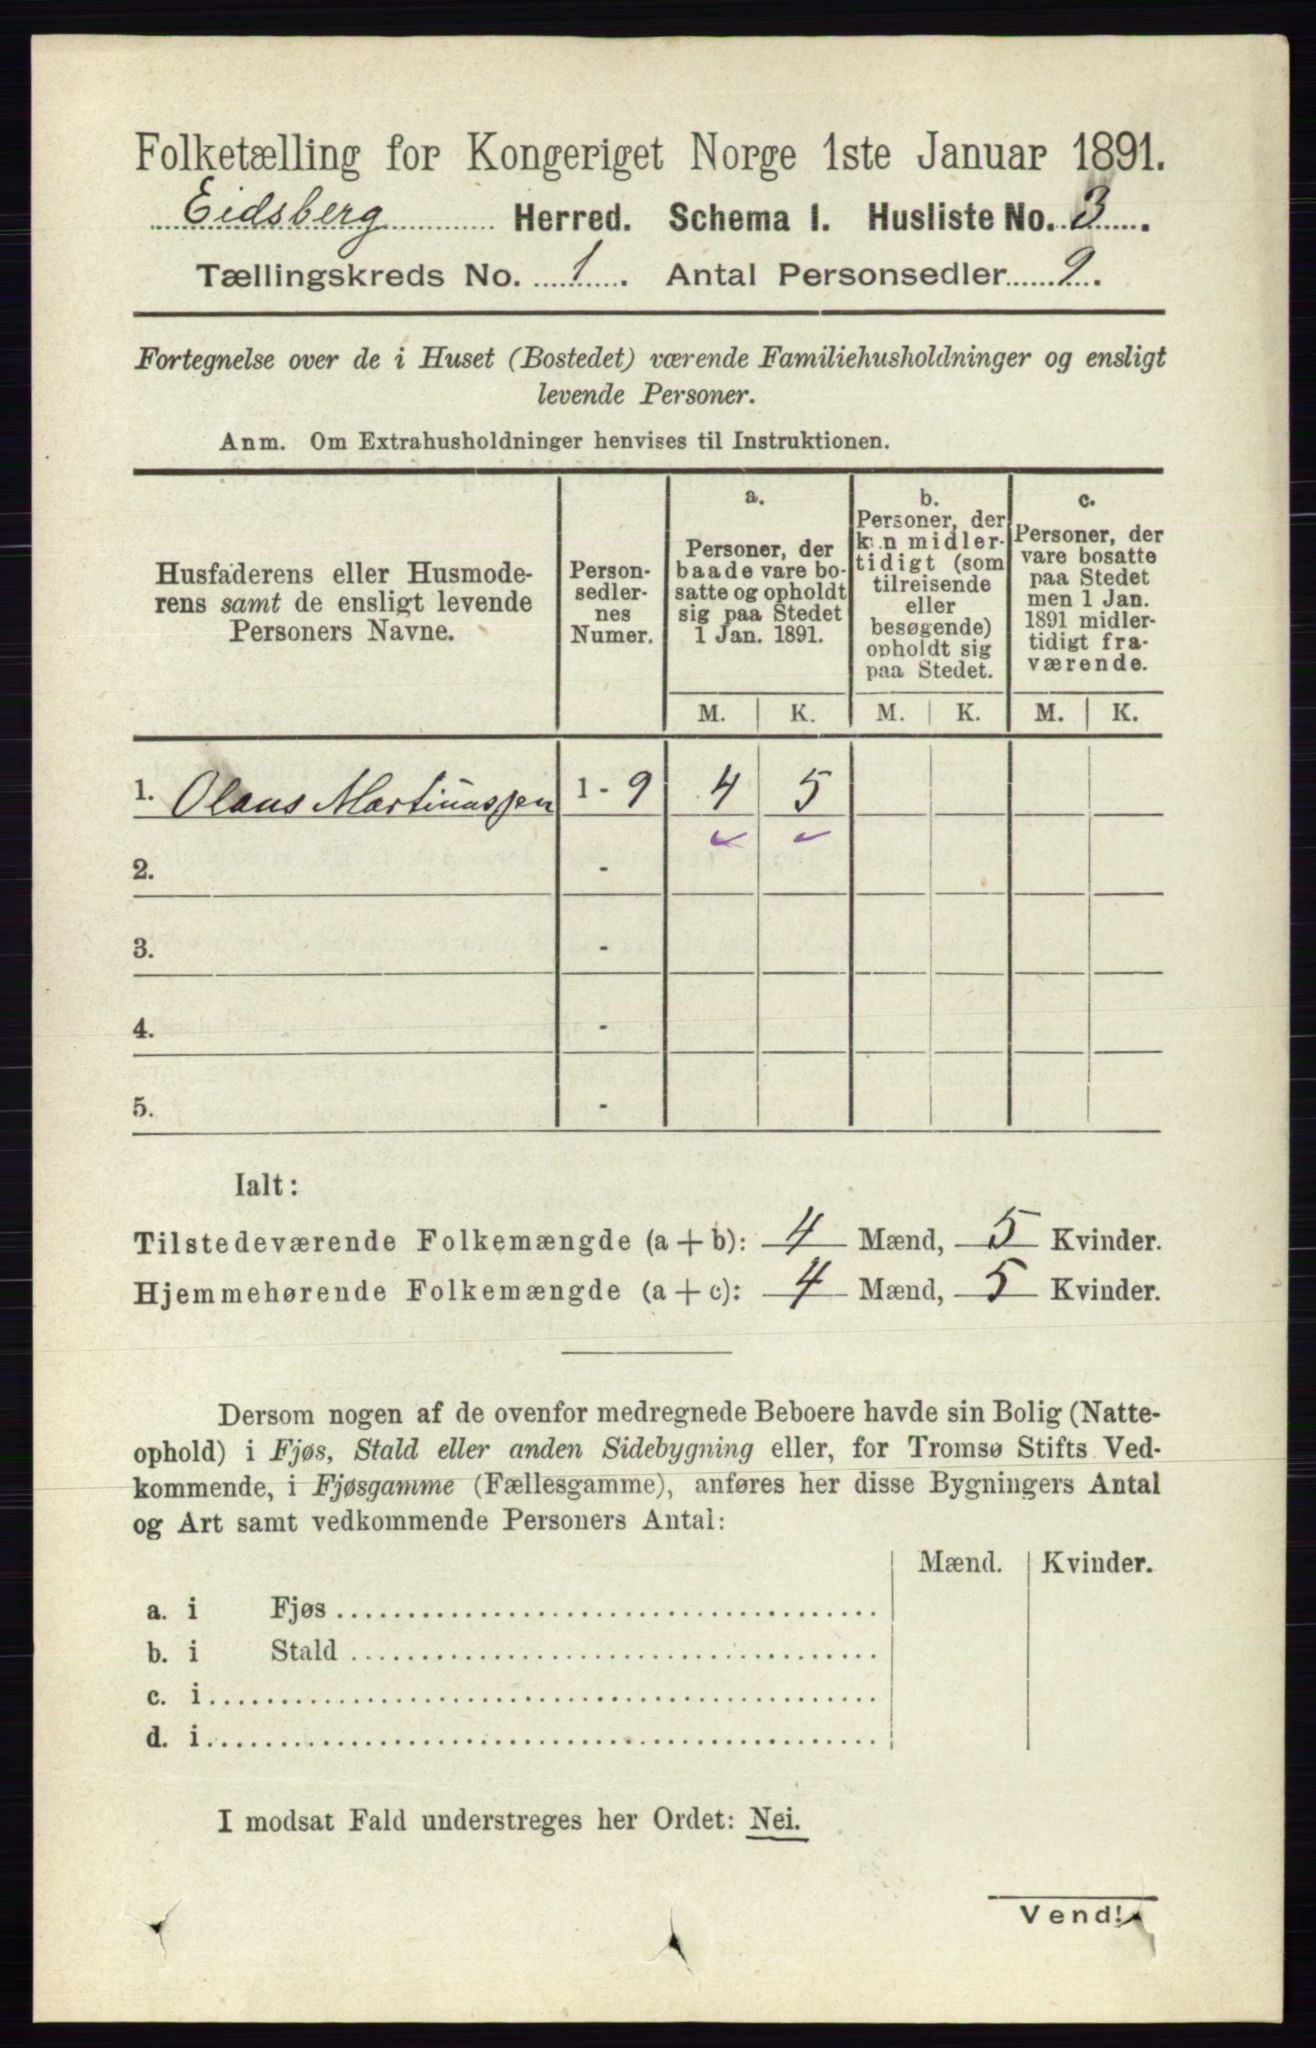 Folketælling for Kongeriget Norge 1ste Januar 1891.
Eidsberg Herred. Schema 1. Husliste No. 3.
Tællingskreds No. 1. Antal Personsedler 9.
Fortegnelse over de i Huset (Bostedet) værende Familiehusholdninger og ensligt
levende Personer.
Anm. Om Extrahusholdninger henvises til Instruktionen.
Husfaderens eller Husmode-
rens samt de ensligt levende
Personers Navne.
Person-
sedler-
nes
Numer.
a.
Personer, der
baade vare bo-
satte og opholdt
sig paa Stedet
1 Jan. 1891.
b.
Personer, der
kun midler-
tidigt (som
tilreisende
eller
besøgende)
opholdt sig
paa Stedet.
c.
Personer, der
vare bosatte
paa Stedet
men 1 Jan.
1891 midler-
tidigt fra-
værende.
M. K. M. K. M. K.
1. Olaus Martinussen 1 - 9 4 5
2. -
3. -
4. -
5. -
Ialt:
Tilstedeværende Folkemængde (a + b): 4 Mænd, 5 Kvinder.
Hjemmehørende Folkemængde (a + c): 4 Mænd, 5 Kvinder.
Dersom nogen af de ovenfor medregnede Beboere havde sin Bolig (Natte-
ophold) i Fjøs, Stald eller anden Sidebygning eller, for Tromsø Stifts Ved-
kommende, i Fjøsgamme (Fællesgamme), anføres her disse Bygningers Antal
og Art samt vedkommende Personers Antal:
Mænd. Kvinder.
a. i Fjøs
b. i Stald
c. i
d. i
I modsat Fald understreges her Ordet: Nei.
Vend!